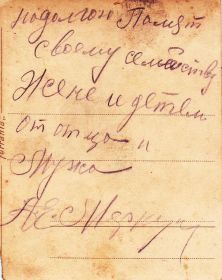 на долгою Памят
своему семейству
Жене и детем
от отца и
Мужа